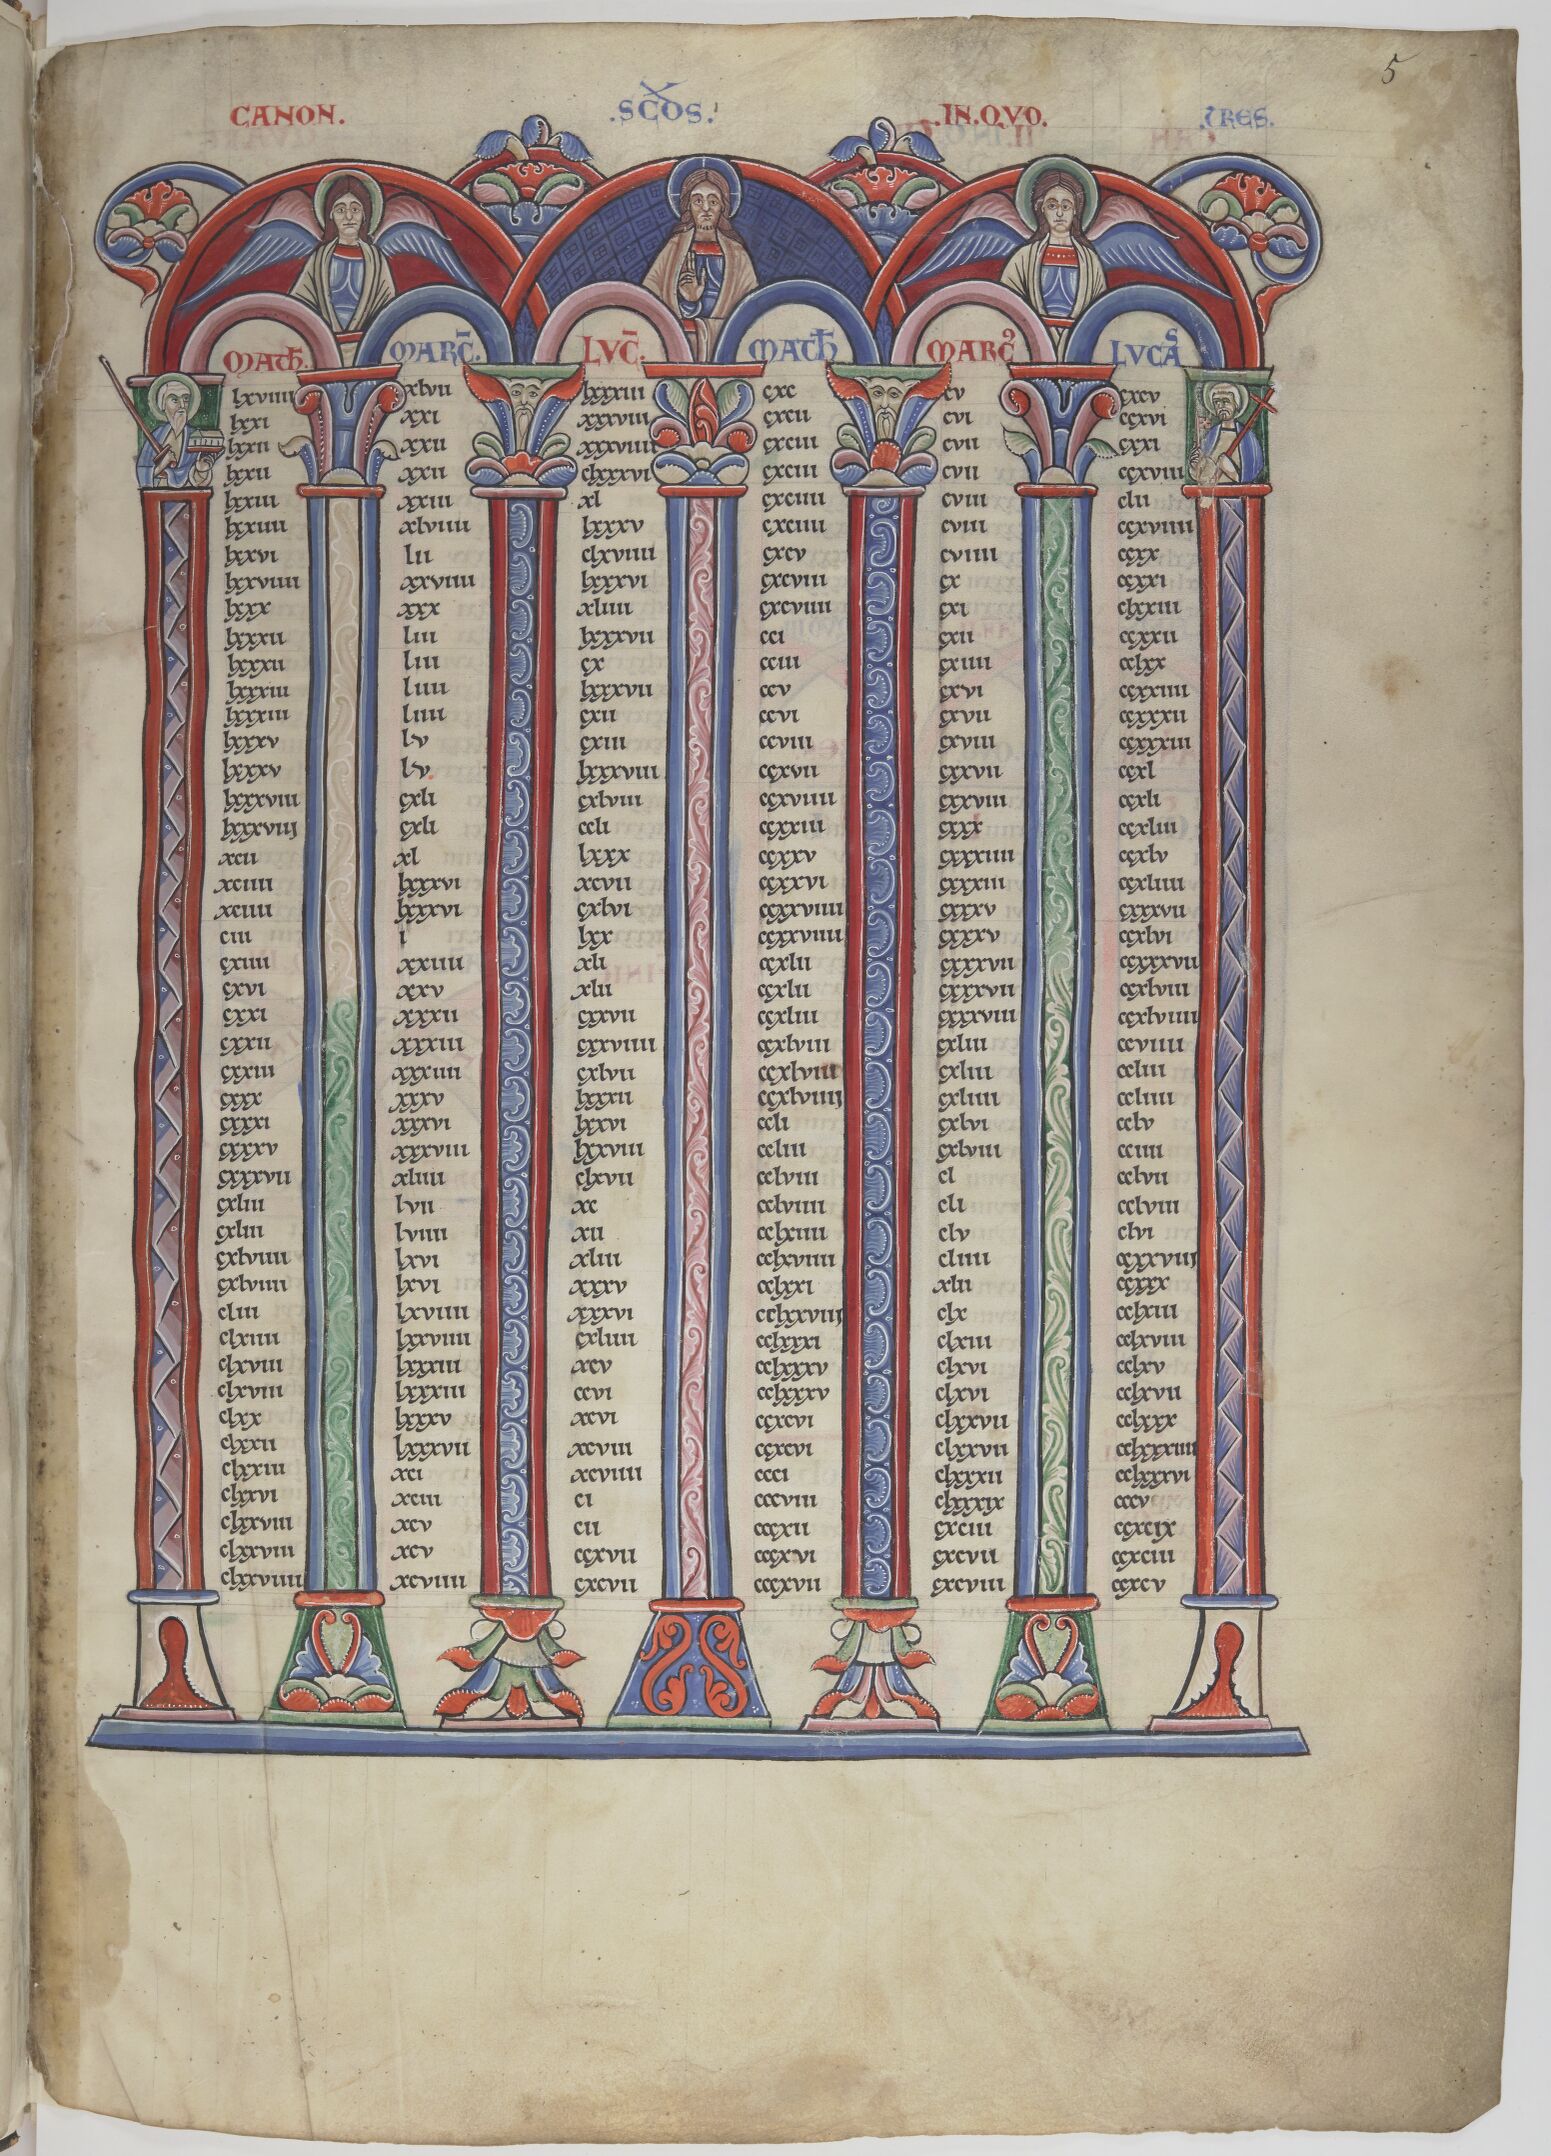 5
CANON. .SCDOS. .IN.QVO. .TRES.
MATH. MARC. LVC. MATH MARC LVCAS
lxviiii xlvii lxxxiii cxc cv cxcv
lxxi xxi xxxviii cxcii cvi ccxvi
lxxii xxii xxxviiii cxciii cvii cxxi
lxxii xxii clxxxvi cxciii cvii ccxviii
lxxiii xxiii xl cxciiii cviii clii
lxxiiii xlviiii lxxxv cxciiii cviii ccxviiii
lxxvi lii clxviiii cxcv cviiii ccxx
lxxviiii xxviiii lxxxvi cxcviii cx ccxxi
lxxx xxx xliiii cxcviiii cxi clxxiii
lxxxii liii lxxxvii cci cxii ccxxii
lxxxii liii cx cciii cxiiii cclxx
lxxxiii liiii lxxxvii ccv cxvi ccxxiiii
lxxxiii liiii cxii ccvi cxvii ccxxxii
lxxxv lv cxiii ccviii cxviii ccxxxiii
lxxxv lv. lxxxviii ccxvii cxxvii ccxl
lxxxviii cxli cxlviii ccxviiii cxxviii ccxli
lxxxviij cxli ccli ccxxiii cxxx ccxliii
xcii xl lxxx ccxxv cxxxiiii ccxlv
xciiii lxxxvi xcvii ccxxvi cxxxiii ccxliiii
xciiii lxxxvi cxlvi ccxxviiii cxxxv cxxxvii
ciii i lxx ccxxviiii cxxxv ccxlvi
cxiiii xxiiii xli ccxlii cxxxvii ccxxxvii
cxvi xxv xlii ccxlii cxxxvii ccxlviii
cxxi xxxii cxxvii ccxliii cxxxviii ccxlviiii
cxxii xxxiii cxxviiii ccxlviii cxliii ccviiii
cxxiii xxxiiii cxlvii ccxlviii cxliii ccliii
cxxx xxxv lxxxii ccxlviiij cxliiii ccliiii
cxxxi xxxvi lxxvi ccli cxlvi cclv
cxxxv xxxviii lxxviii ccliii cxlviii cciiii
cxxxvii xliiii clxvii cclviii cl cclvii
cxliii lvii xc cclviiii cli cclviii
cxliii lviiii xii cclxiiii clv clvi
cxlviiii lxvi xliii cclxviiii cliiii ccxxxviij
cxlviiii lxvi xxxv cclxxi xlii ccxxx
cliii lxviiii xxxvi cclxxviij clx cclxiii
clxiiii lxxviiii cxliiii cclxxxi clxiii cclxviii
clxviii lxxxiii xcv cclxxxv clxvi cclxv
clxviii lxxxiii ccvi cclxxxv clxvi cclxvii
clxx lxxxv xcvi ccxcvi clxxvii cclxxx
clxxii lxxxvii xcviii ccxcvi clxxvii cclxxxiiii
clxxiii xci xcviiii ccci clxxxii cclxxxvi
clxxvi xciii ci cccviii clxxxix cccv
clxxviii xcv cii cccxii cxciii ccxcix
clxxviii xcv ccxvii cccxvi cxcvii ccxciii
clxxviiii xcviiii cxcvii cccxvii cxcviii ccxcv